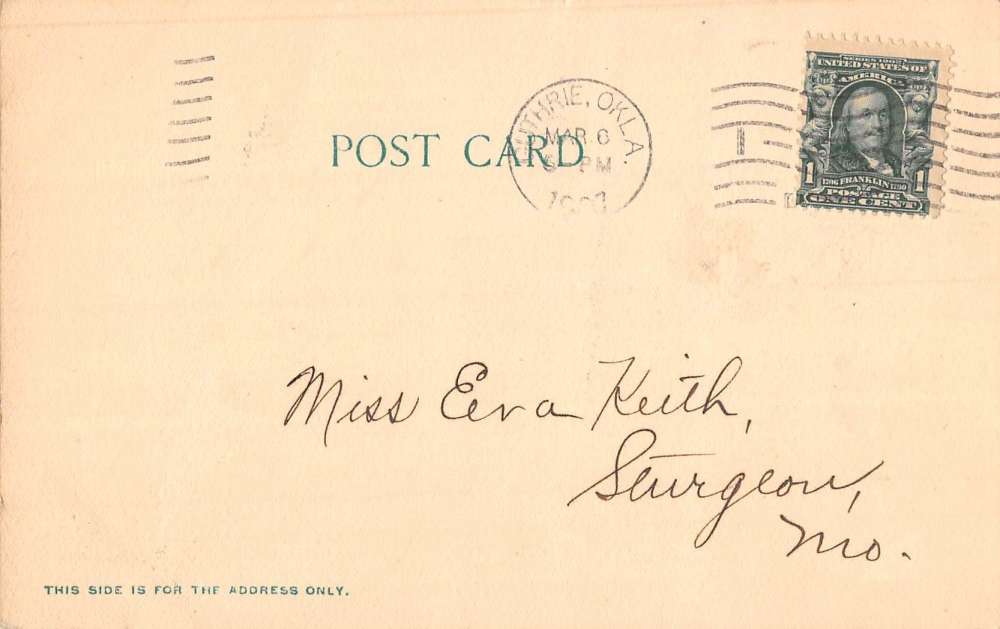 POST CARD
GUTHRIE, OKLA.
MAR 6
PM
1907
SERIES 1902
UNITED STATES OF
AMERICA
1706 FRANKLIN 1790
POSTAGE
1 ONE CENT 1
Miss Eva Keith,
Sturgeon,
Mo.
THIS SIDE IS FOR THE ADDRESS ONLY.